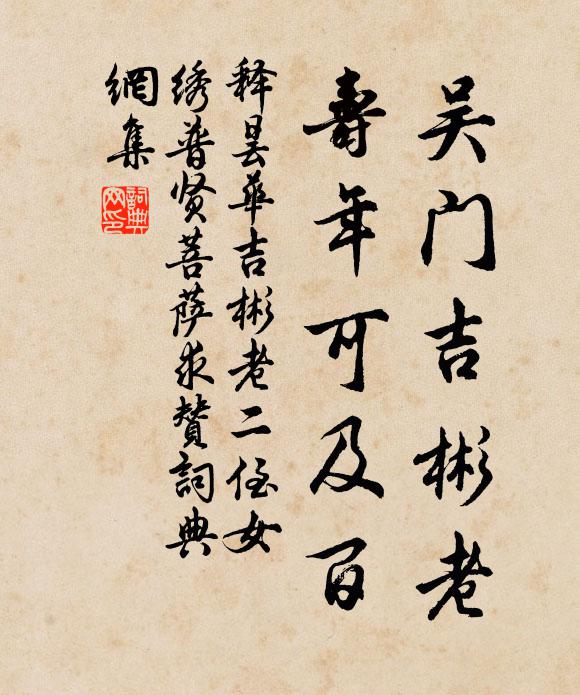 吴门吉彬老
寿年可及百
释昙华吉彬老二侄女
绣普贤菩萨求赞詞典
網集
詞典網印